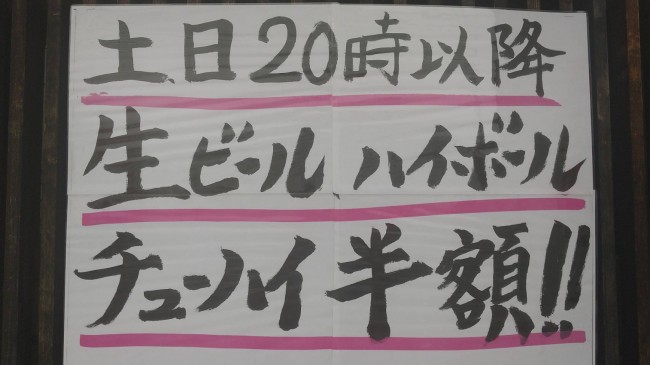 土、日20時以降
生ビール ハイボール
チューハイ 半額!!